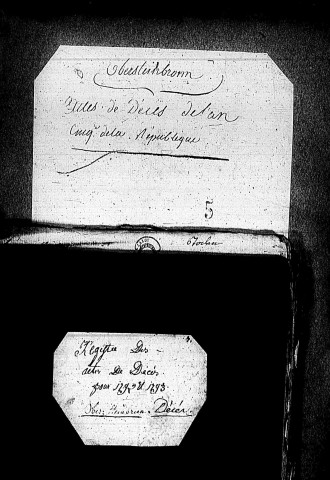 Obersteinbronn
Actes de Décès de l'an
Cinq de la République
5
Registre Des
actes De Décès
pour 1792 et 1793
Décès